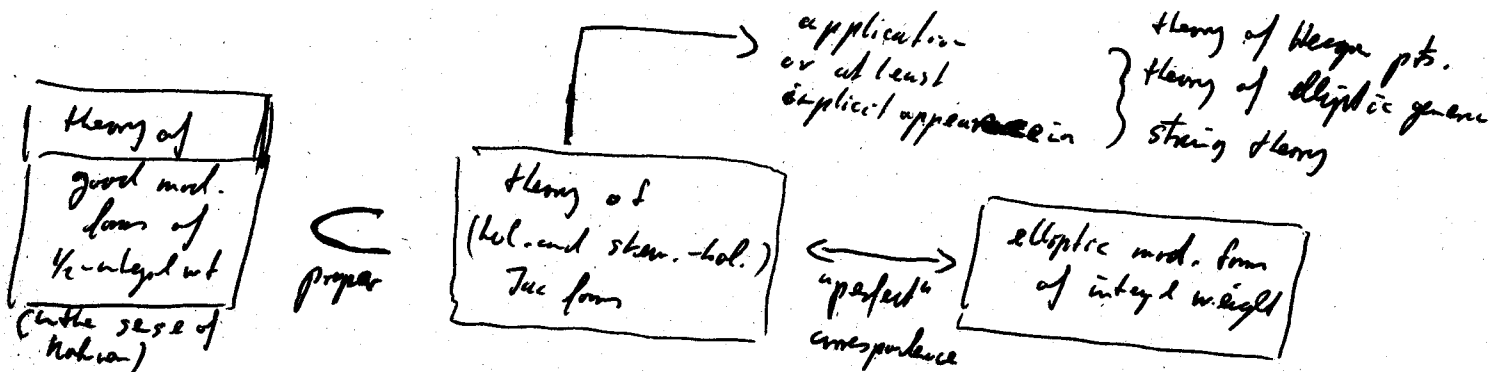 theory of
good mod.
forms of
1/2-integral wt
(in the sense of
Kohnen)
⊂
proper
theory of
(hol. and skew.-hol.)
Jac forms
application
or at least
implicit appear in
theory of Heegn pts.
theory of elliptic genera
string theory
"perfect"
correspondence
elliptic mod. form
of integral weight